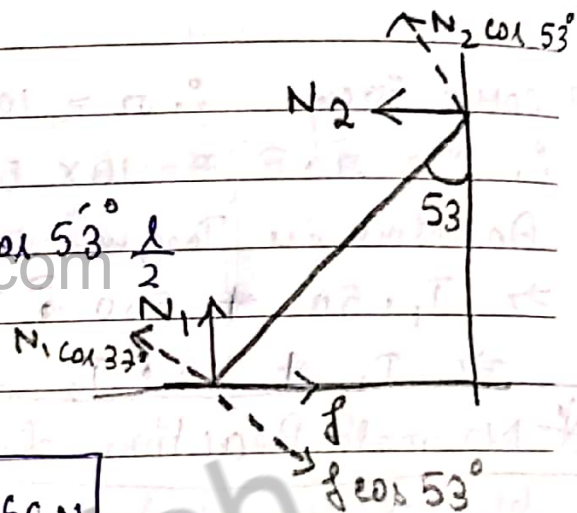 N₂ cos 53°
N₂
53
cos 53° l/2
com
N₁
N₁ cos 37°
f
f cos 53°